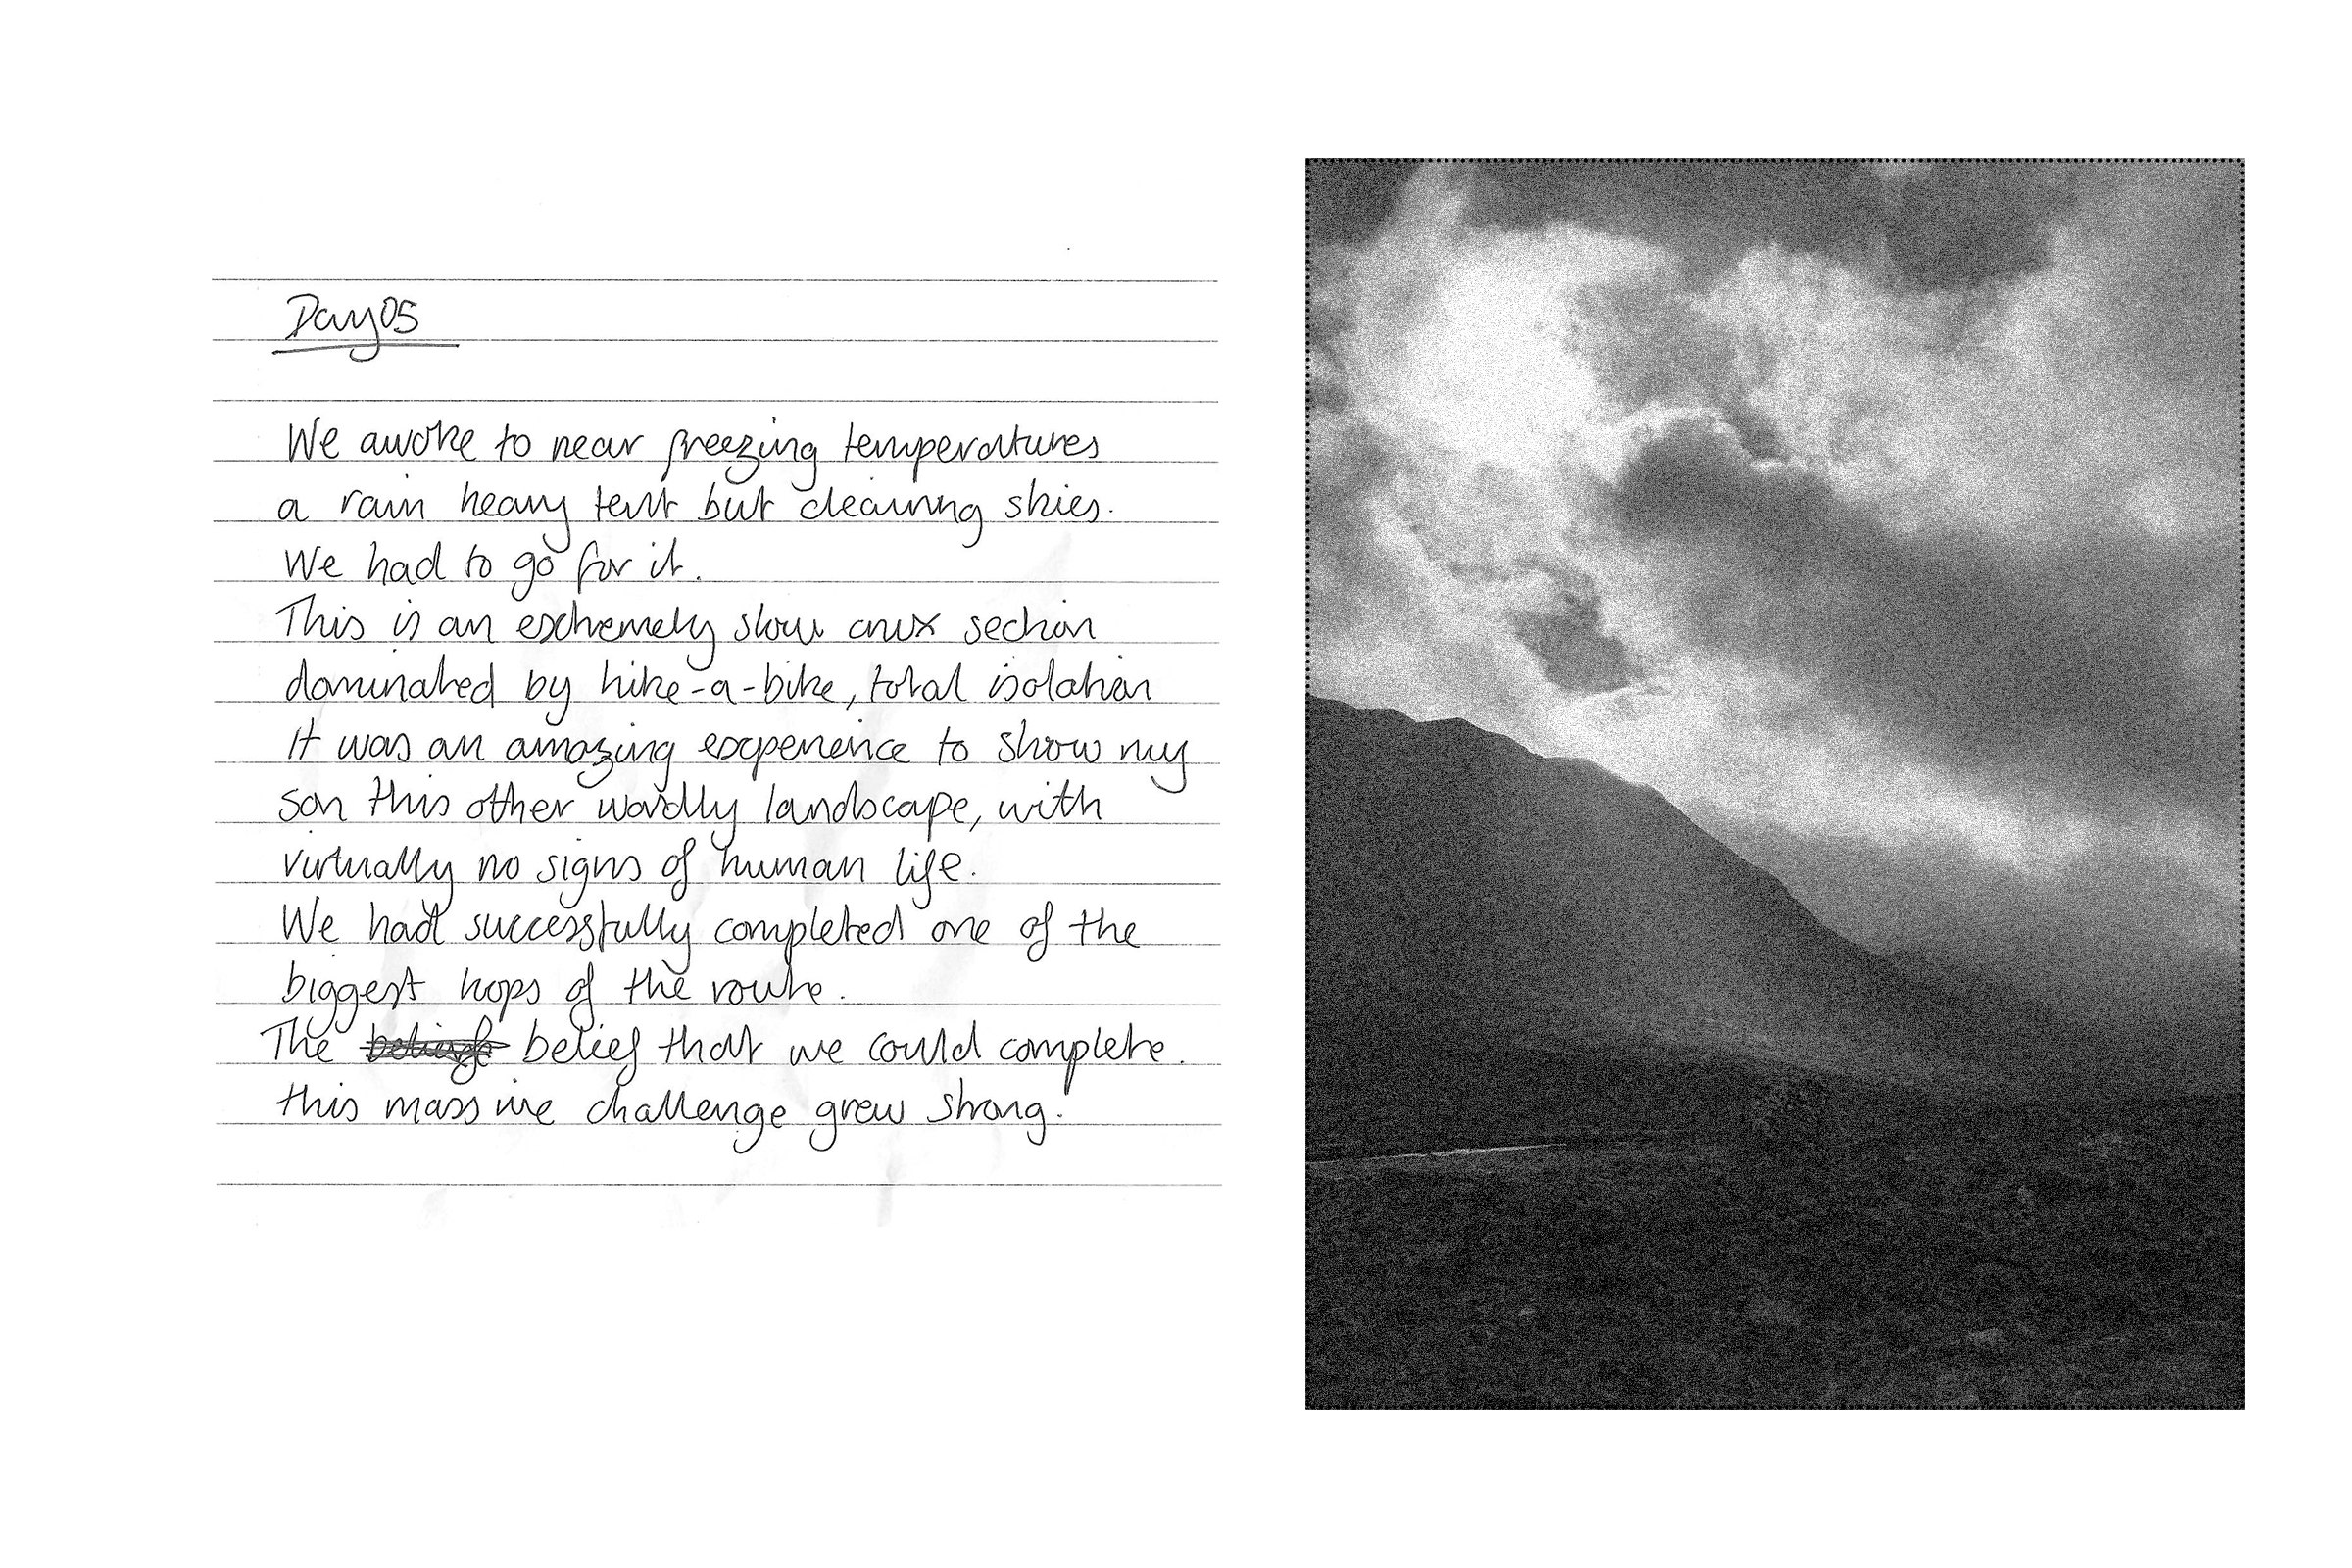 Day 05
We awoke to near freezing temperatures
a rain heavy tent but clearing skies.
We had to go for it.
This is an extremely slow crux section
dominated by hike-a-bike, total isolation
It was an amazing experience to show my
son this other wordly landscape, with
virtually no signs of human life.
We had successfully completed one of the
biggest hops of the route.
The belief that we could complete.
this massive challenge grew strong.